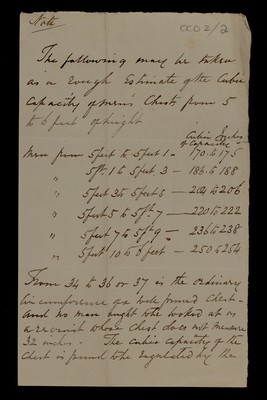 Note
CCO2/2
The following may be taken
as a rough Estimate of the Cubic
Capacity of mens' Chests from 5
to 6 feet of height
Cubic Inches
of Capacity
Men from 5 feet to 5 feet 1 - 170 to 175
" 5 ft 1 to 5 feet 3 - 186 to 188
" 5 feet 3 to 5 feet 5 - 204 to 206
" 5 feet 5 to 5 ft 7 - 220 to 222
" 5 feet 7 to 5 ft 9 - 236 to 238
" 5 feet 10 to 6 feet - 250 to 254
From 34 to 36 or 37 is the ordinary
circumference of a well formed Chest -
and no man ought to be looked at as
a recruit whose chest does not measure
32 inches. The cubic capacity of the
chest is found to be regulated by the